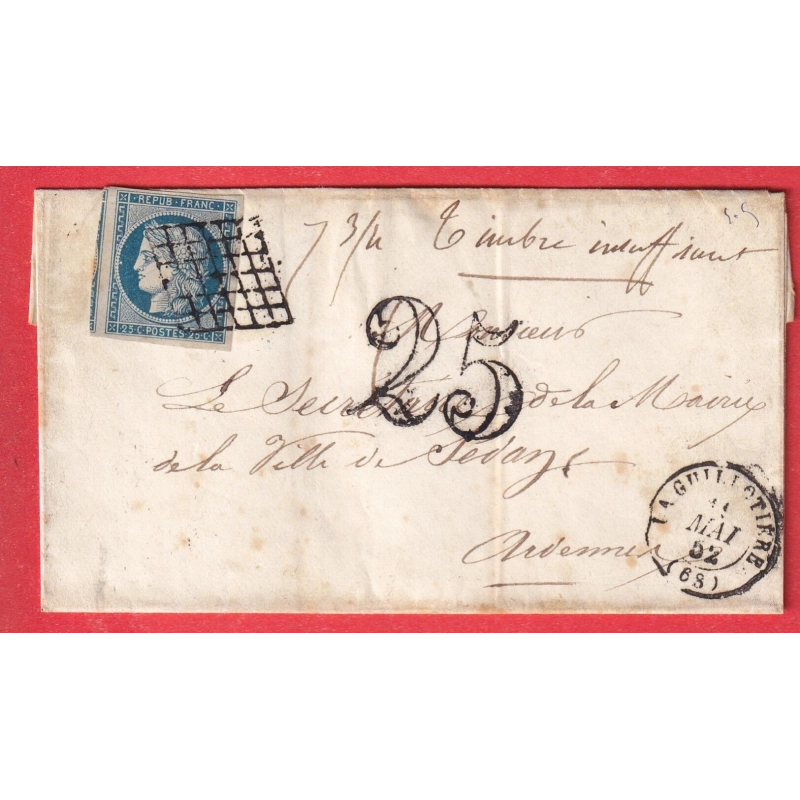 REPUB·FRANC·
25 C·POSTES·25·C·
7 3/4 Timbre insuffisant
25
Monsieur
Le Secretaire de la Mairie
de la Ville de Sedan
Ardennes
LA GUILLOTIERE
11
MAI
52
(68)